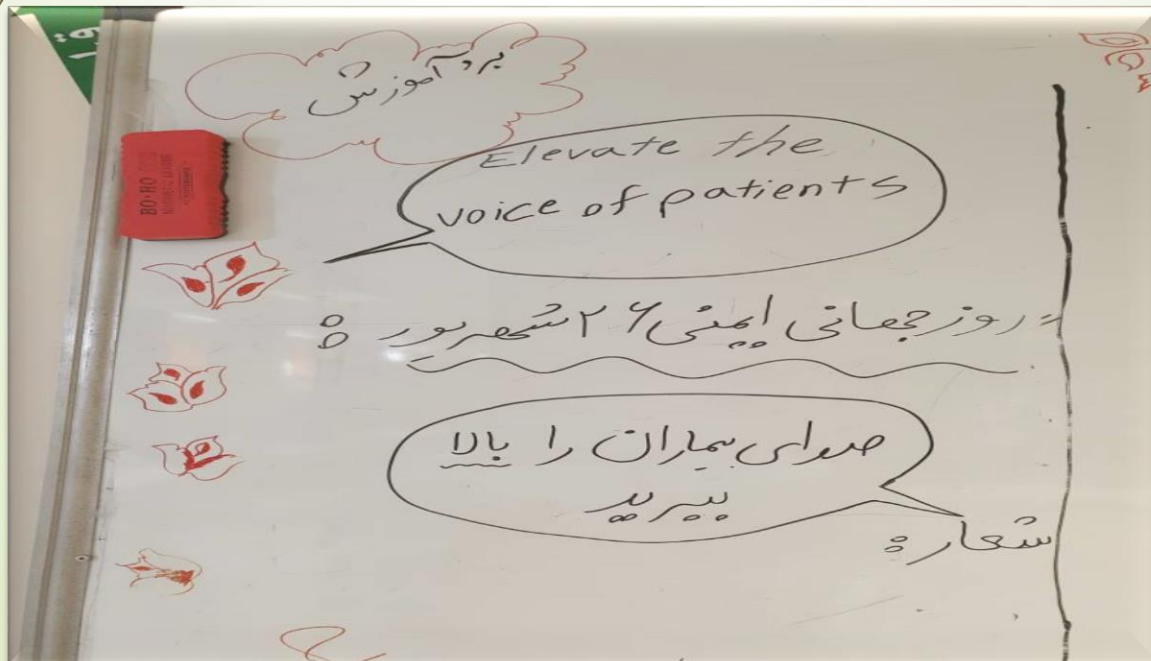 برد آموزش
Elevate the
voice of patients
روز جهانی ایمنی ۲۶ شهریور :
صدای بیماران را بالا
ببرید
شعار :
BO-HO